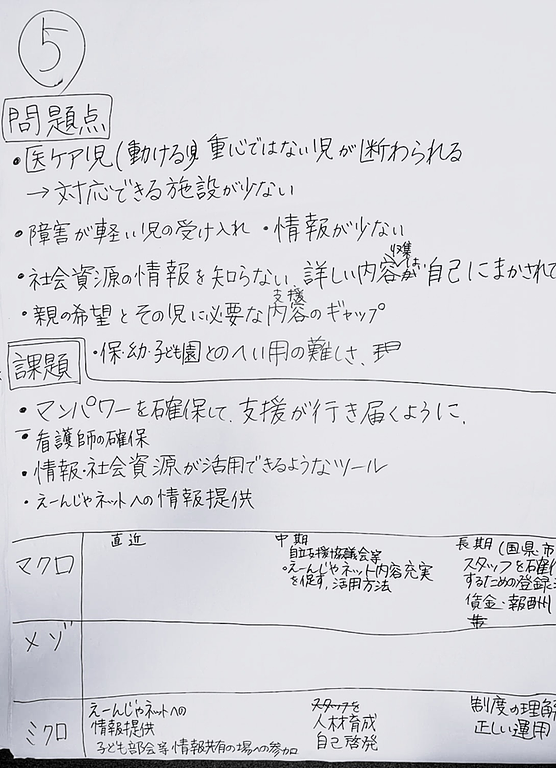 ⑤
問題点
・医ケア児(動ける児 重心ではない児が断わられる
→対応できる施設が少ない
・障害が軽い児の受け入れ ・情報が少ない
・社会資源の情報を知らない、詳しい内容収集は自己にまかされて
・親の希望とその児に必要な支援内容のギャップ
課題 ・保・幼・子ども園とのへい用の難しさ、
・マンパワーを確保して、支援が行き届くように、
・看護師の確保
・情報・社会資源が活用できるようなツール
・えーんじゃネットへの情報提供
直近 中期 長期(国・県・市
マクロ
自立支援協議会等
・えーんじゃネット内容充実
を促す、活用方法
スタッフを確保
するための登録
賃金・報酬
メゾ
ミクロ
えーんじゃネットへの
情報提供
子ども部会等情報共有の場への参加
スタッフを
人材育成
自己啓発
制度の理解
正しい運用